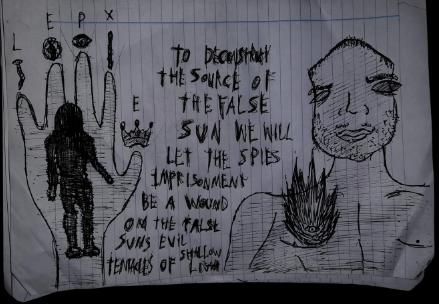 L E P X
E
TO DECONSTRUCT
THE SOURCE OF
THE FALSE
SUN WE WILL
LET THE SPIES
IMPRISONMENT
BE A WOUND
ON THE FALSE
SUNS EVIL
TENTACLES OF SHALLOW
LIGHT